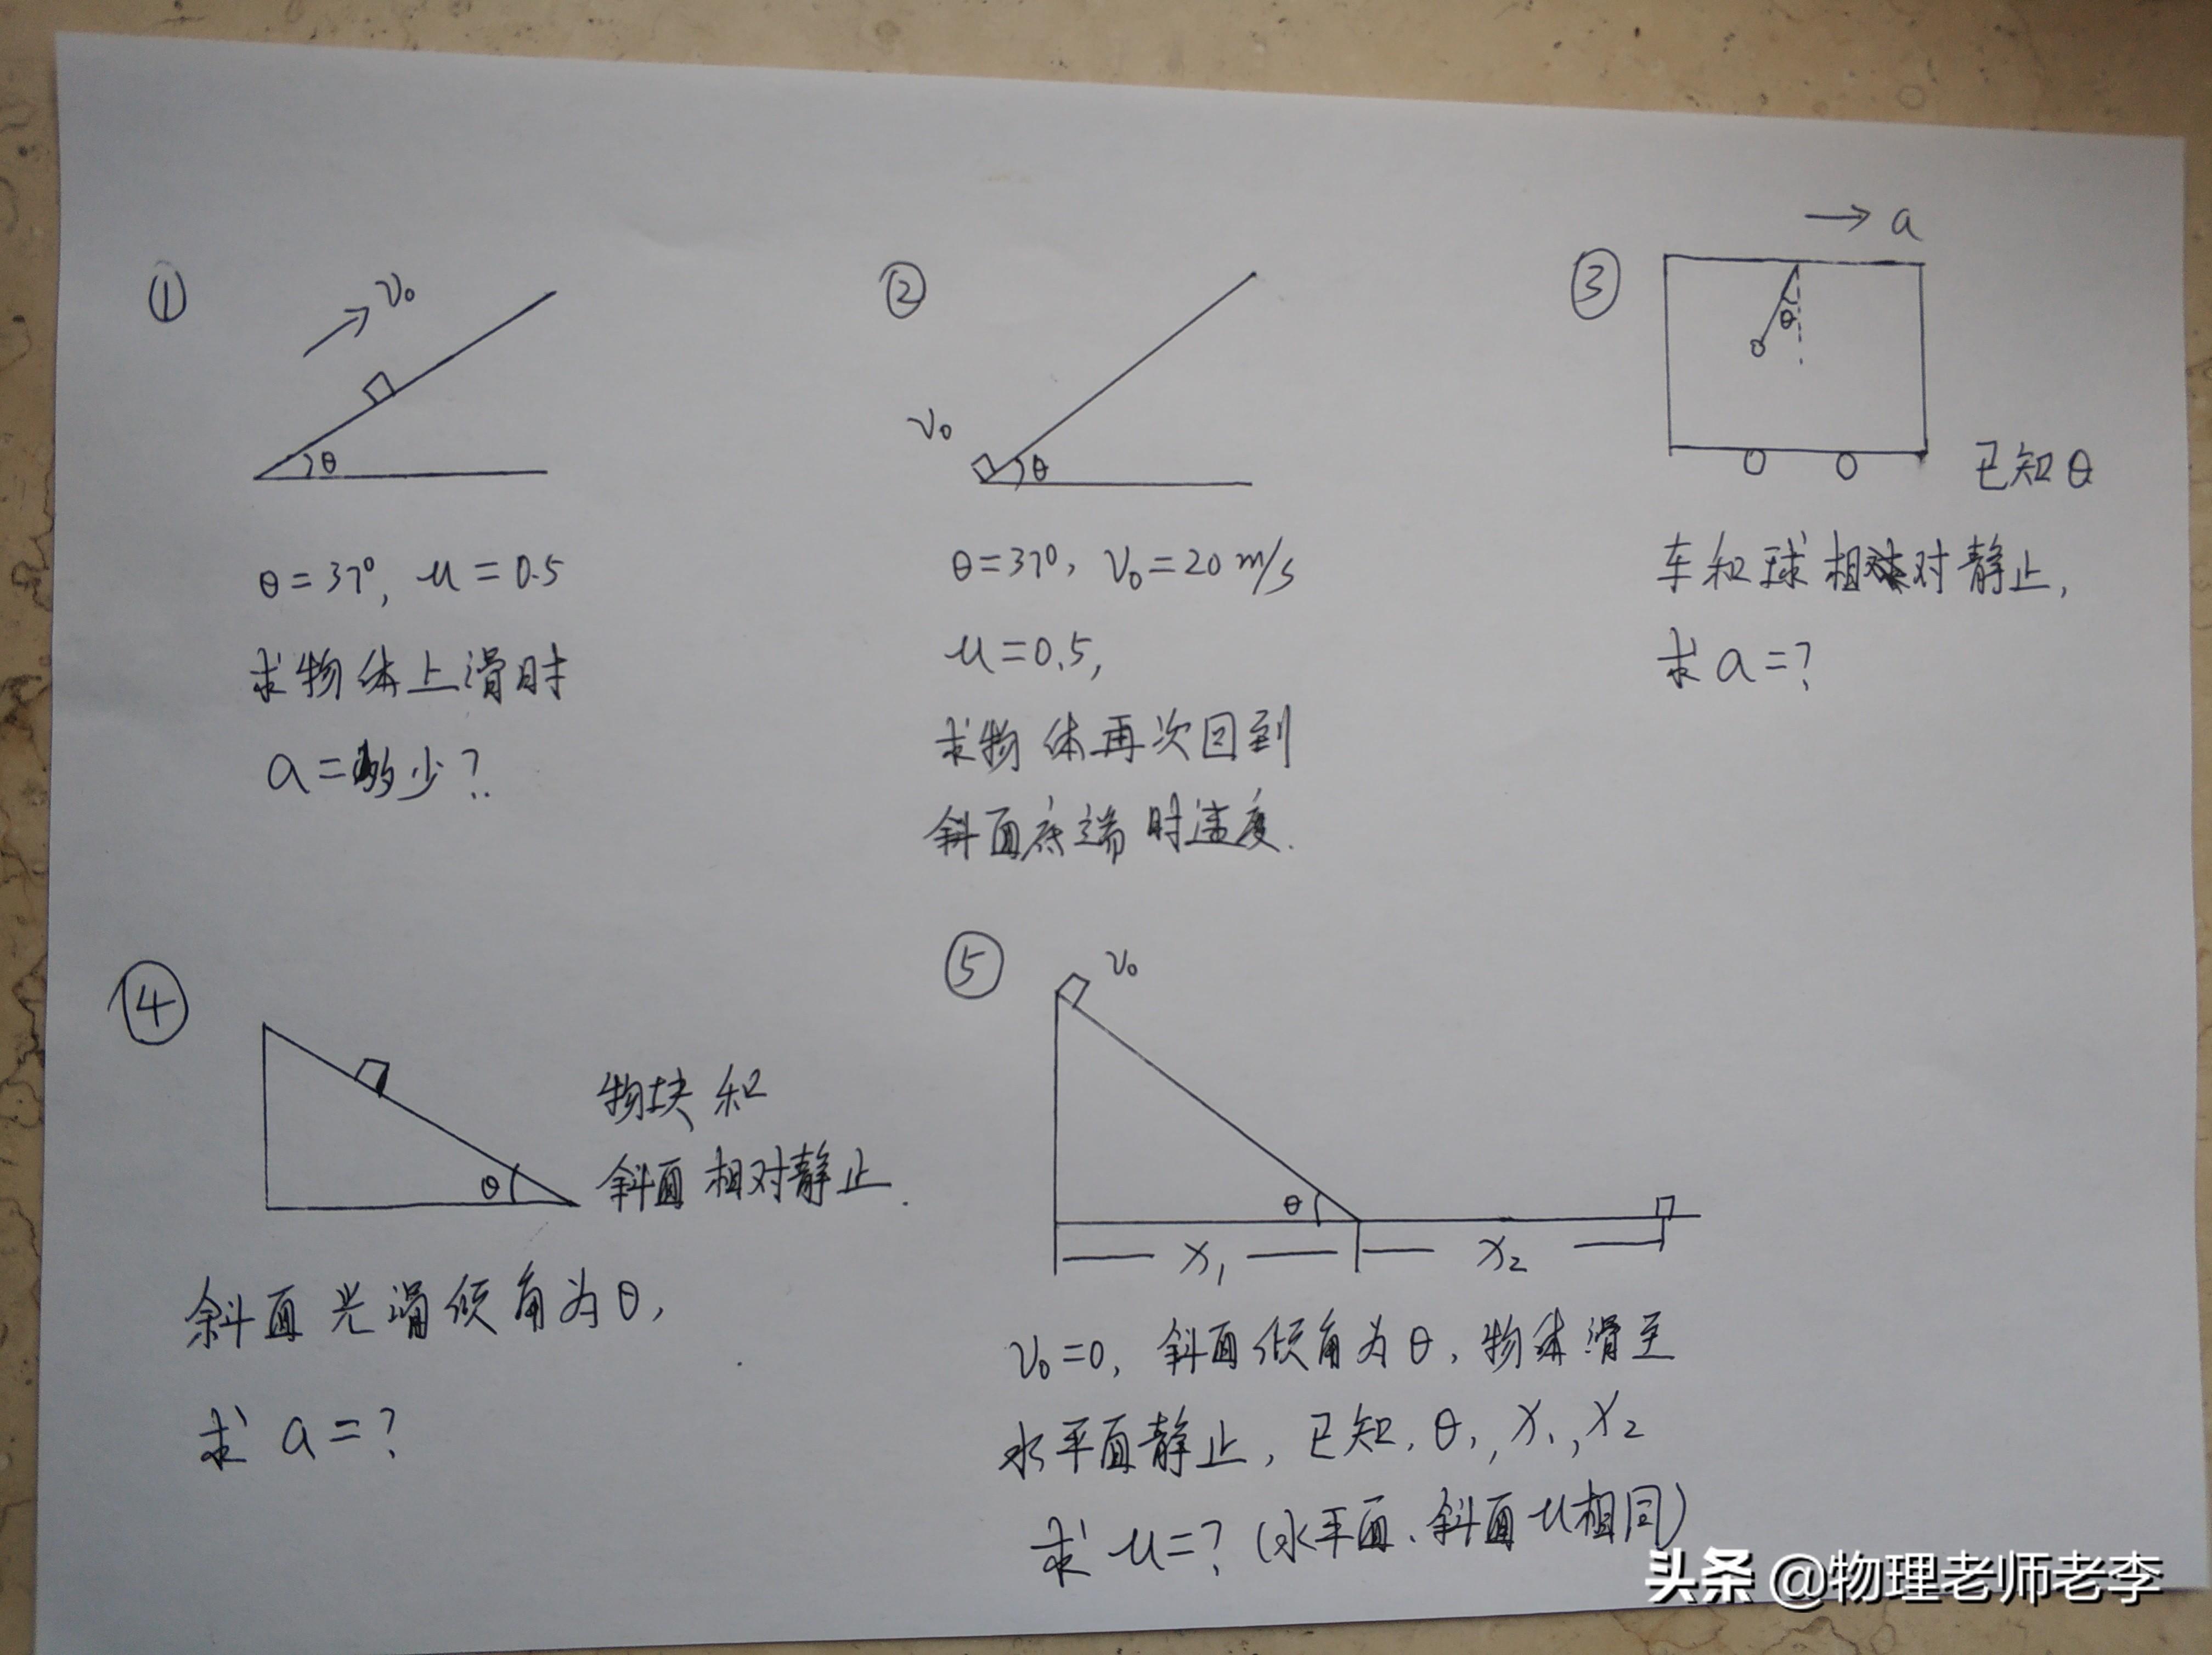 ①
v₀
θ
θ=37°, μ=0.5
求物体上滑时
a=多少?
②
v₀
θ
θ=37°, v₀=20m/s
μ=0.5,
求物体再次回到
斜面底端时速度.
③
→ a
θ
已知θ
车和球相对静止,
求a=?
④
θ
物块和
斜面相对静止.
斜面光滑倾角为θ,
求 a=?
⑤
v₀
θ
x₁ x₂
v₀=0, 斜面倾角为θ, 物体滑至
水平面静止, 已知, θ, x₁, x₂
求 μ=? (水平面、斜面μ相同)
头条 @物理老师老李